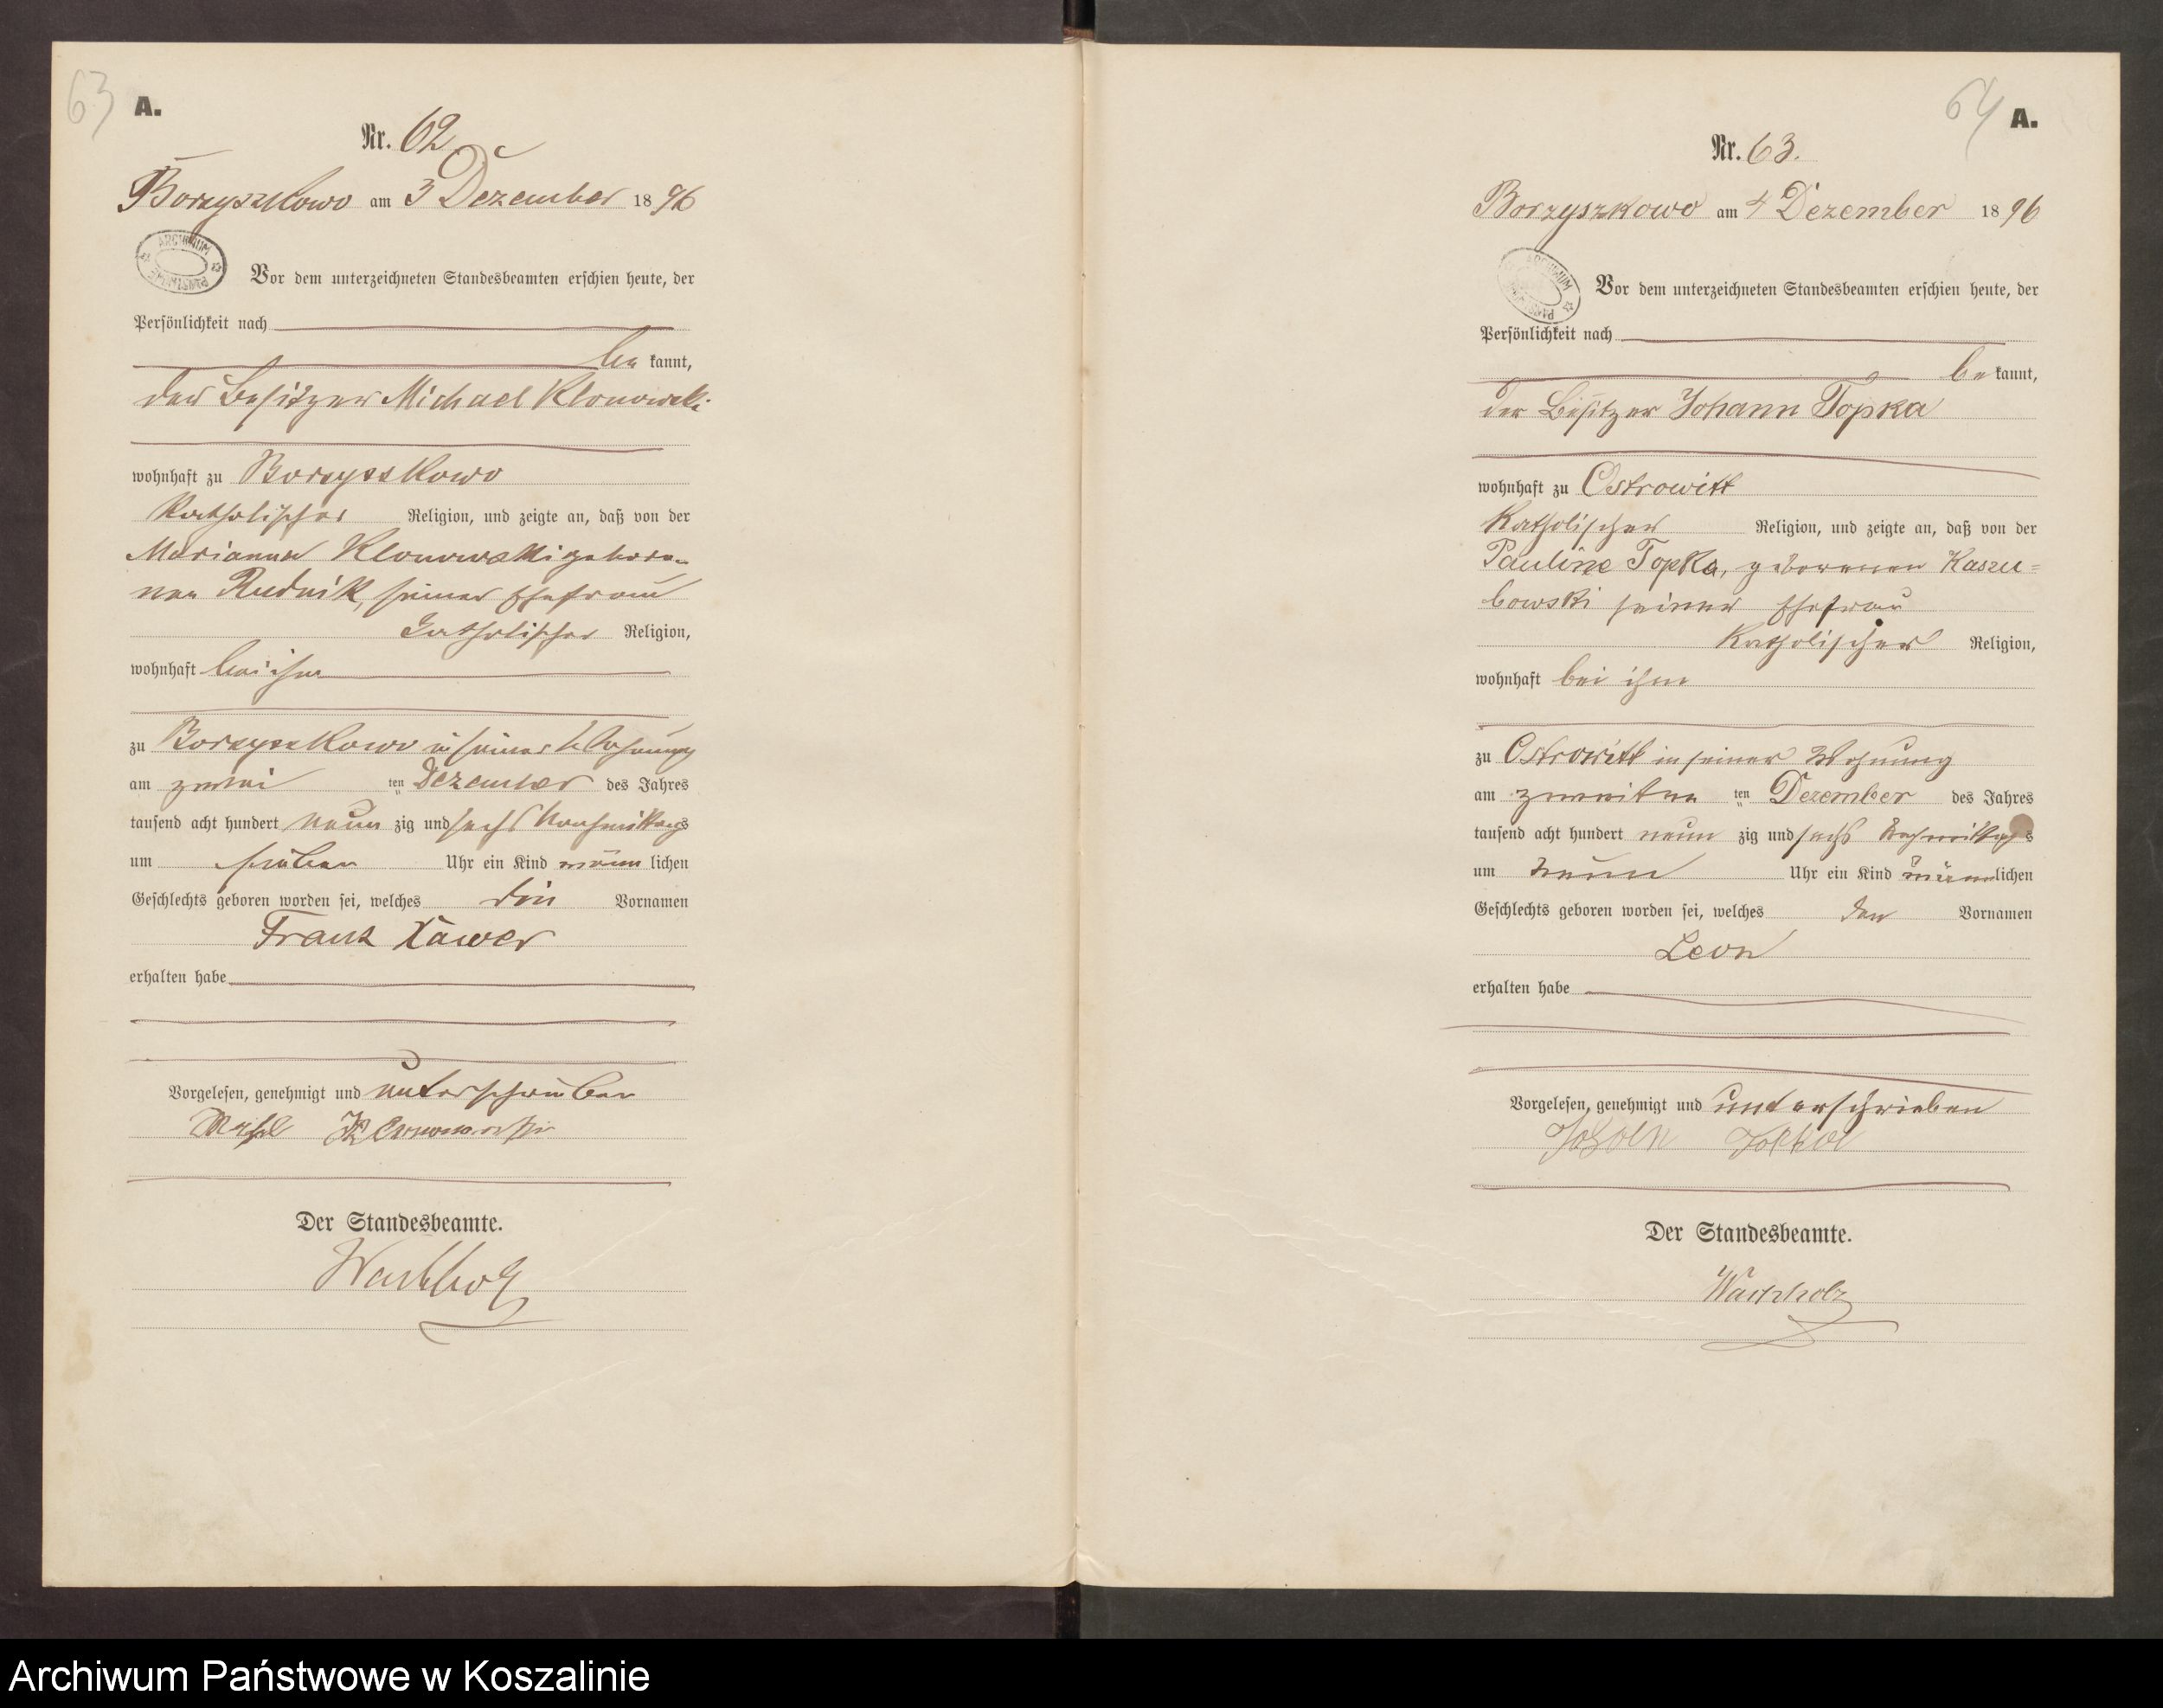 63
A.
Nr. 62
Borzyszkowo am 3 Dezember 1896
ARCHIWUM PAŃSTWOWE
Vor dem unterzeichneten Standesbeamten erschien heute, der
Persönlichkeit nach
be kannt,
der Besitzer Michael Klonowski
wohnhaft zu Borzyszkowo
katholischer Religion, und zeigte an, daß von der
Marianna Klonowski gebore-
nen Rudnik, seiner Ehefrau
katholischer Religion,
wohnhaft bei ihm
zu Borzyszkowo in seiner Wohnung
am zwei ten Dezember des Jahres
tausend acht hundert neun zig und sechs Nachmittags
um sieben Uhr ein Kind männ lichen
Geschlechts geboren worden sei, welches die Vornamen
Franz Xawer
erhalten habe
Vorgelesen, genehmigt und unterschrieben
Klonowski
Der Standesbeamte.
Wachholz
64
A.
Nr. 63.
Borzyszkowo am 4 Dezember 1896
ARCHIWUM PAŃSTWOWE
Vor dem unterzeichneten Standesbeamten erschien heute, der
Persönlichkeit nach
be kannt,
der Besitzer Johann Topka
wohnhaft zu Ostrowitt
katholischer Religion, und zeigte an, daß von der
Pauline Topka, geborenen Kaszu=
bowski seiner Ehefrau
katholischer Religion,
wohnhaft bei ihm
zu Ostrowitt in seiner Wohnung
am zweiten ten Dezember des Jahres
tausend acht hundert neun zig und sechs Nachmittags
um neun Uhr ein Kind männlichen
Geschlechts geboren worden sei, welches den Vornamen
Leon
erhalten habe
Vorgelesen, genehmigt und unterschrieben
Topka
Der Standesbeamte.
Wachholz
Archiwum Państwowe w Koszalinie